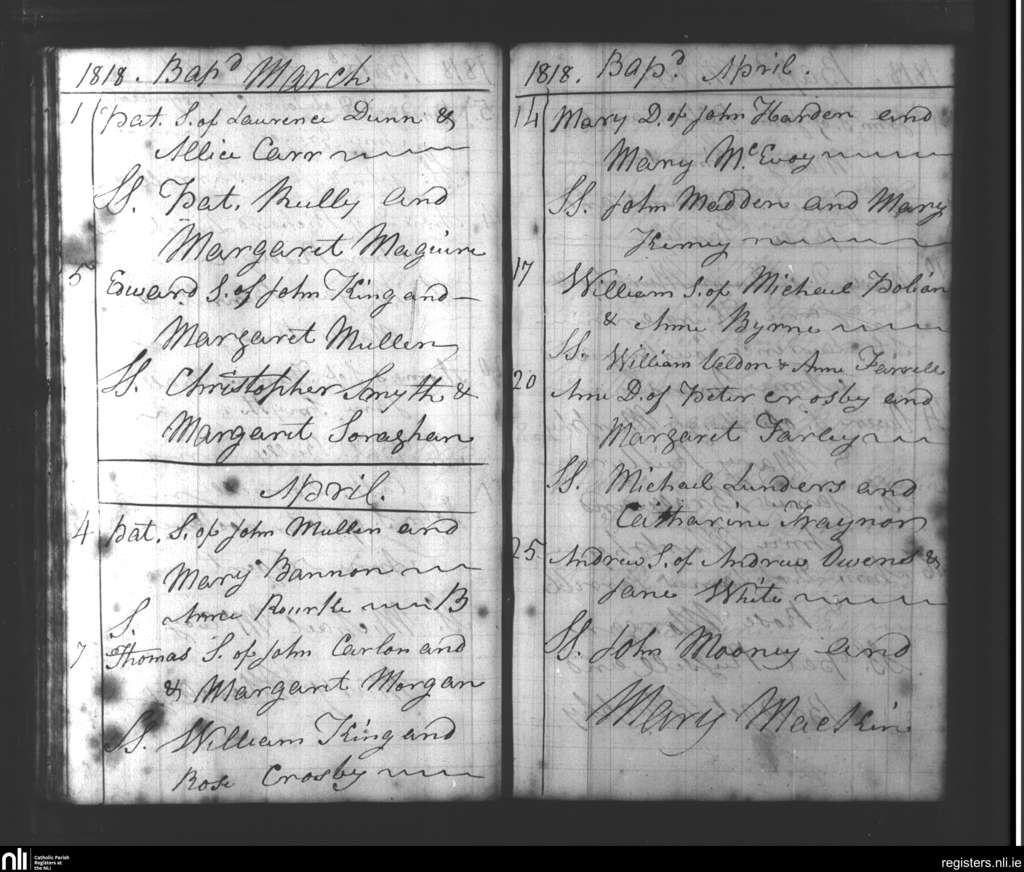 1818. Bap^d March
1 Pat. S. of Laurence Dunn &
Allice Carr
SS. Pat. Rully and
Margaret Maguire
5 Edward S. of John King and
Margaret Mullen
SS. Christopher Smyth &
Margaret Soraghan
April.
4 Pat. S. of John Mullen and
Mary Bannon
S. Anne Rourke B
7 Thomas S. of John Carlon and
& Margaret Morgan
SS. William King and
Rose Crosby
1818. Bap^d. April.
14 Mary D. of John Harden and
Mary McEvoy
SS. John Madden and Mary
Kerney
17 William S. of Michael Dolian
& Anne Byrne
SS. William Veldon & Anne Farrell
20 Anne D. of Peter Crosby and
Margaret Farley
SS. Michael Lunders and
Catharine Traynor
25. Andrew S. of Andrew Owens &
Jane White
SS. John Mooney and
Mary Mackin
nli Catholic Parish
Registers at
the NLI
registers.nli.ie